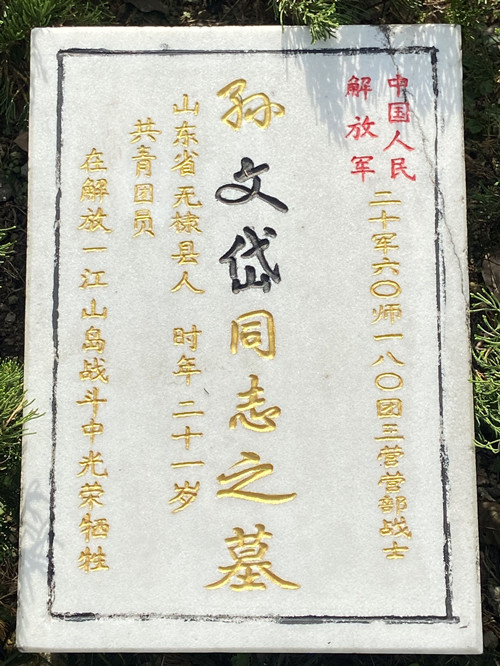 中国人民
解放军
二十军六〇师一八〇团三营营部战士
孙文岱同志之墓
山东省无棣县人 时年二十一岁
共青团员
在解放一江山岛战斗中光荣牺牲